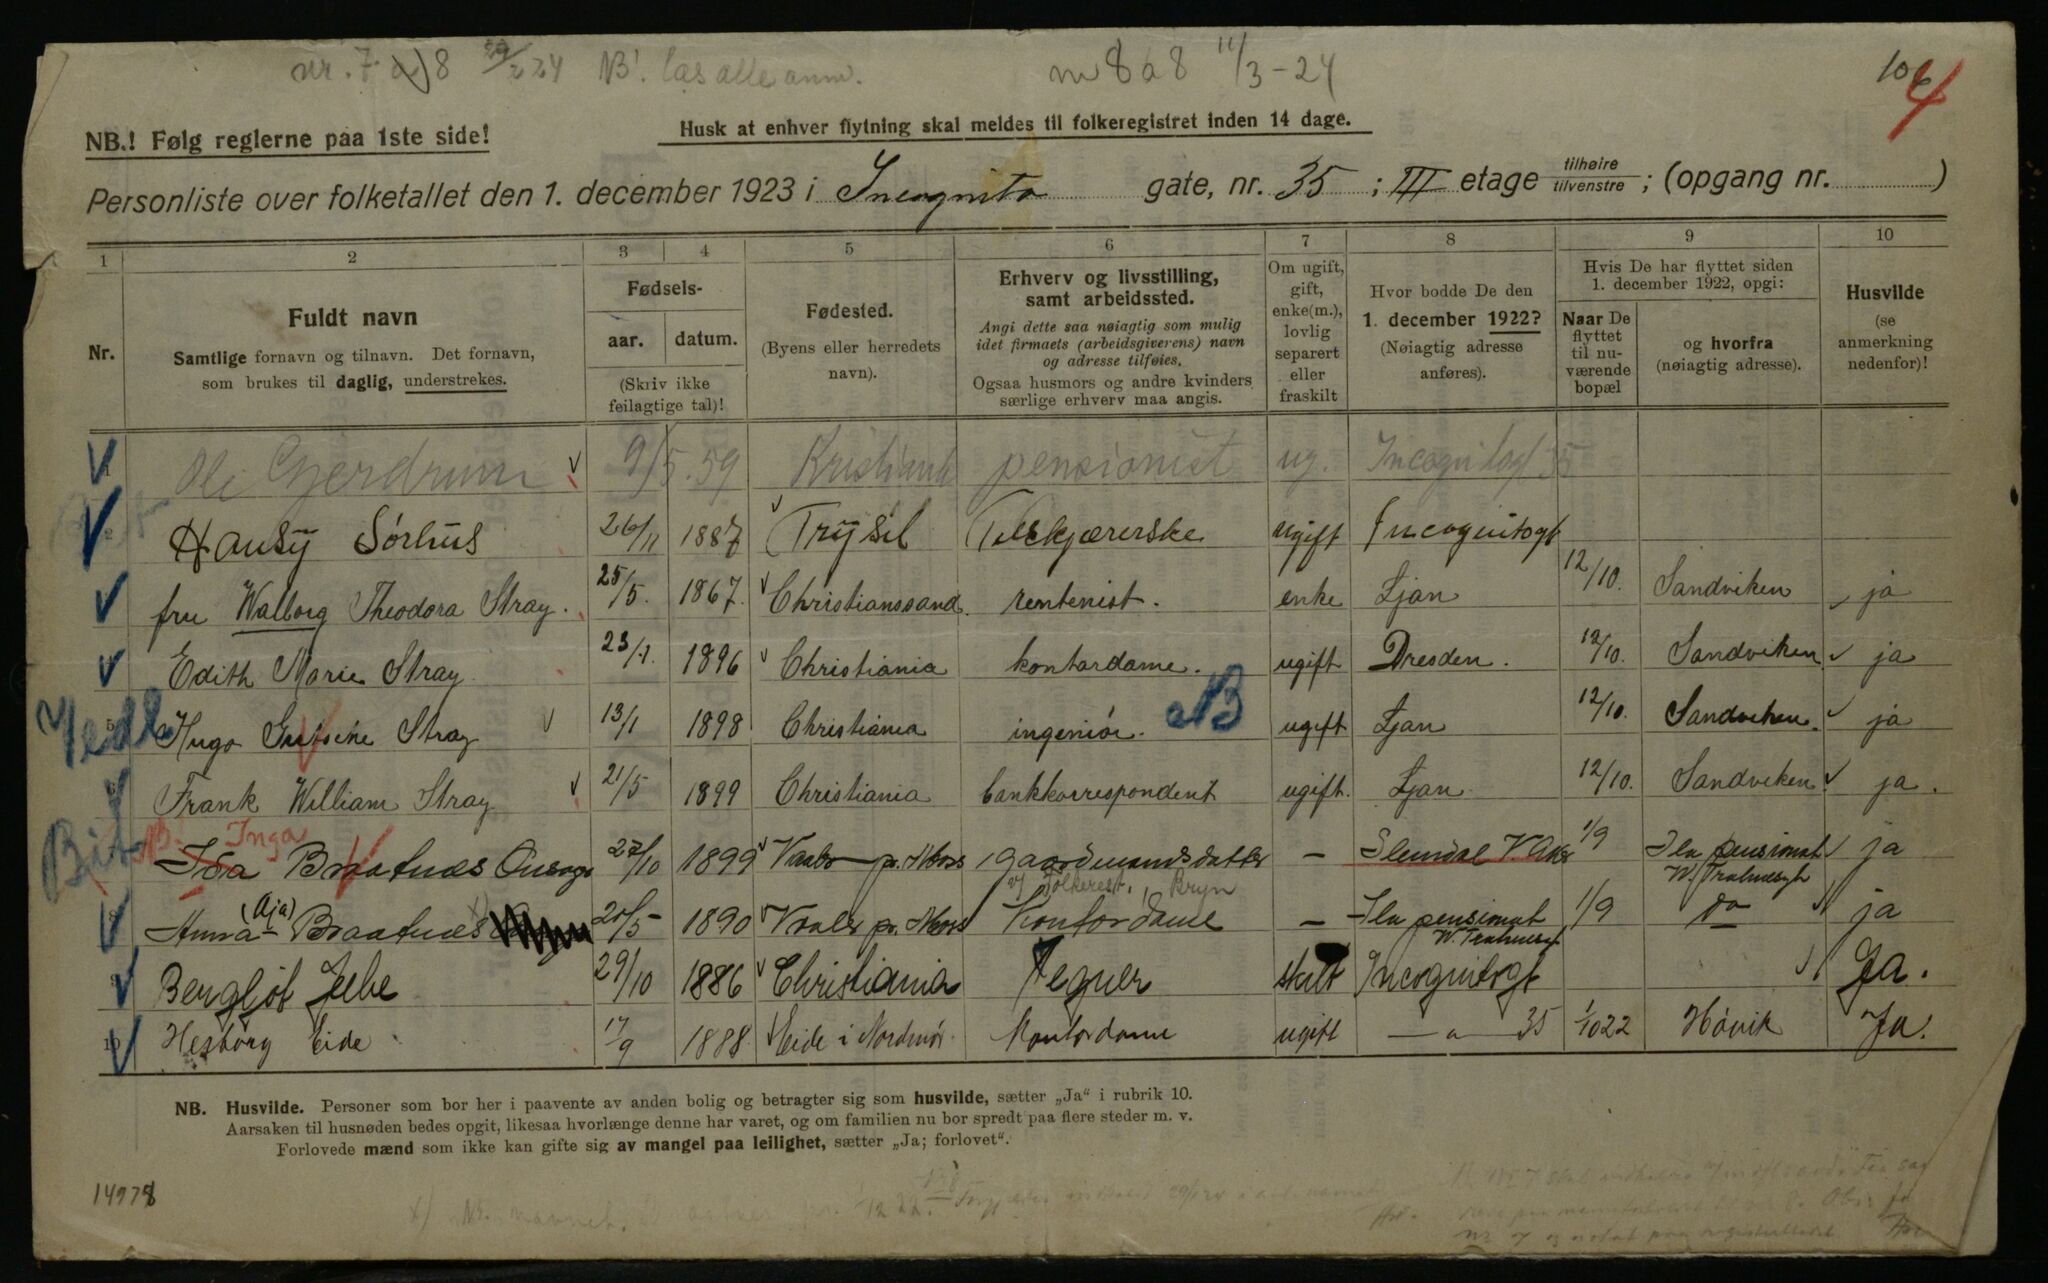 nr. 7 a 8 29/2 24 NB! læs alle anm.
nr 8 a 8 11/3-24
106
4
NB.! Følg reglerne paa 1ste side!
Husk at enhver flytning skal meldes til folkeregistret inden 14 dage.
Personliste over folketallet den 1. december 1923 i Incognito gate, nr. 35 ; III etage tilhøire tilvenstre ; (opgang nr. )
1 2 3 4 5 6 7 8 9 10
Nr.
Fuldt navn
Samtlige fornavn og tilnavn. Det fornavn,
som brukes til daglig, understrekes.
Fødsels-
aar. datum.
(Skriv ikke
feilagtige tal)!
Fødested.
(Byens eller herredets
navn).
Erhverv og livsstilling,
samt arbeidssted.
Angi dette saa nøiagtig som mulig
idet firmaets (arbeidsgiverens) navn
og adresse tilføies.
Ogsaa husmors og andre kvinders
særlige erhverv maa angis.
Om ugift,
gift,
enke(m.),
lovlig
separert
eller
fraskilt
Hvor bodde De den
1. december 1922?
(Nøiagtig adresse
anføres).
Hvis De har flyttet siden
1. december 1922, opgi:
Naar De
flyttet
til nu-
værende
bopæl
og hvorfra
(nøiagtig adresse).
Husvilde
(se
anmerkning
nedenfor)!
1 Ole Gjerdrum 9/5. 59 Kristiania pensionist ug. Incognitogt 35
2 Hansy Sörhus 26/11 1887 Trysil ugift Incognitogt
fru Walborg Theodora Stray. 25/5. 1867. Christianssand. rentenist. enke Ljan 12/10. Sandviken ja
Edith Marie Stray 23/1. 1896 Christiania kontordame. ugift Dresden. 12/10. Sandviken ja
Jedl 5 Hugo Stray 13/1 1898 Christiania ingeniør. NB ugift Ljan 12/10. Sandviken. ja
6 Frank William Stray 21/5 1899 Christiania bankkorrespondent ugift. Ljan 12/10. Sandviken ja.
NB. Inga
Ida Braatnes Onsøgt 27/10 1899 Vaaler pr. Moss gaardmandsdatter - Slemdal V. Aker 1/9 Ila pensionat ja
W. Tranesgt
v/ Folkerest. Bryn
Anna (Aja) Braatnes x) 20/5 1890 Vaaler pr. Moss Kontordame - Ila pensionat 1/9 do ja
W. Tranesgt
9 Bergljot Jebe 29/10 1886 Christiania Tegner skilt Incognitogt Ja.
10 Hesborg Eide 17/9 1888. Eide i Nordmør. Kontordame ugift - " - 35 1/10 22 Høvik Ja.
NB. Husvilde. Personer som bor her i paavente av anden bolig og betragter sig som husvilde, sætter „Ja“ i rubrik 10.
Aarsaken til husnøden bedes opgit, likesaa hvorlænge denne har varet, og om familien nu bor spredt paa flere steder m. v.
Forlovede mænd som ikke kan gifte sig av mangel paa leilighet, sætter „Ja; forlovet“.
14978
x) NB. navnet.